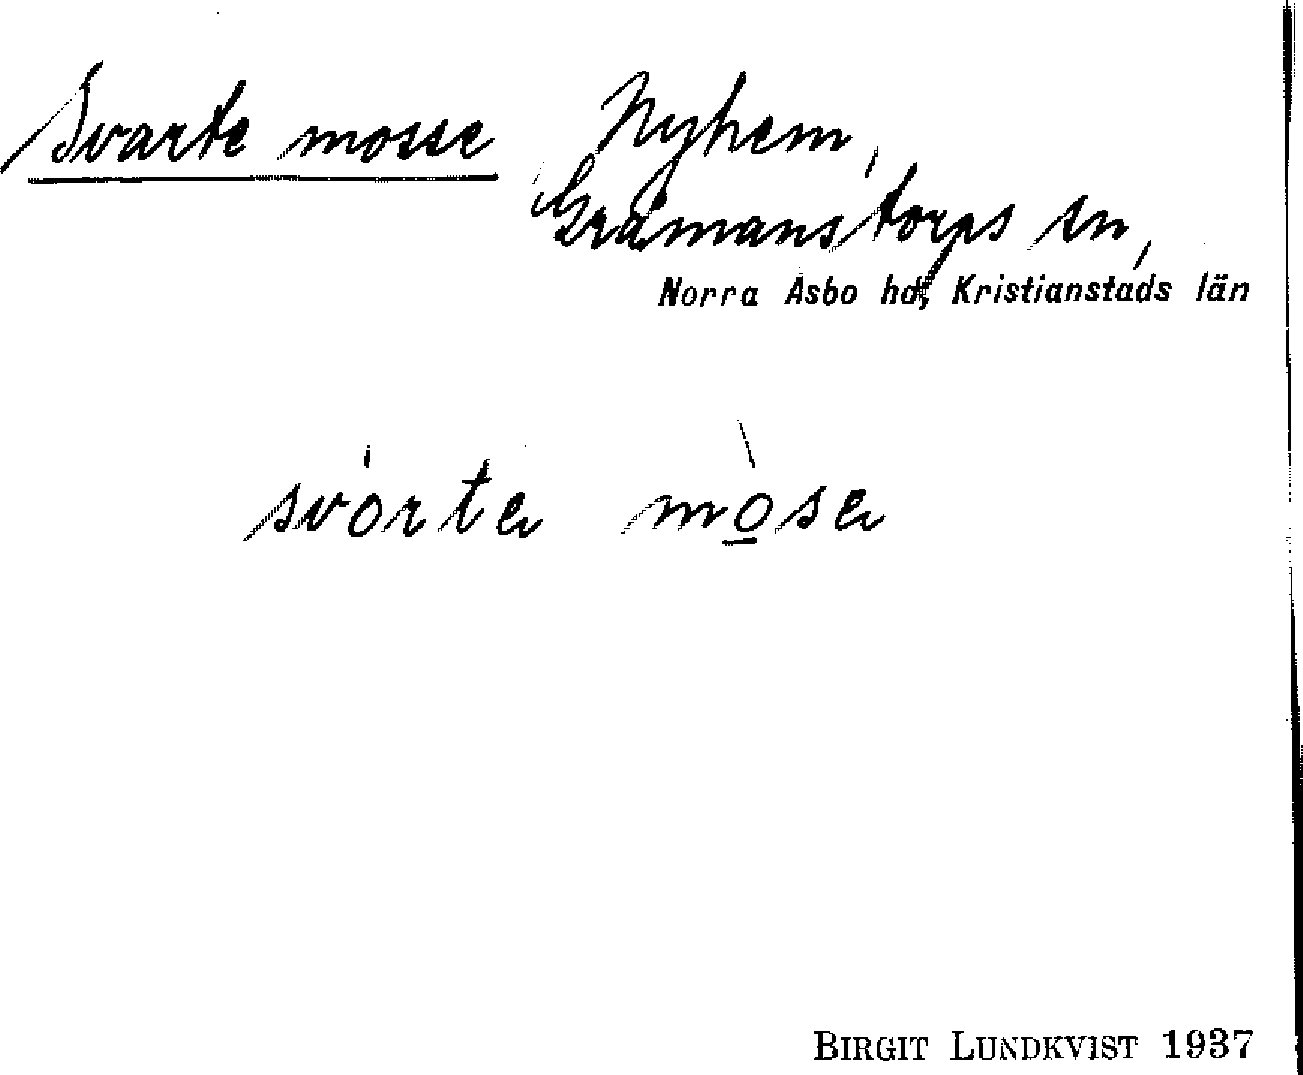 Svarte mosse Nyhem,
Gråmanstorps sn,
Norra Åsbo hd, Kristianstads län
svorte mose
BIRGIT LUNDKVIST 1937